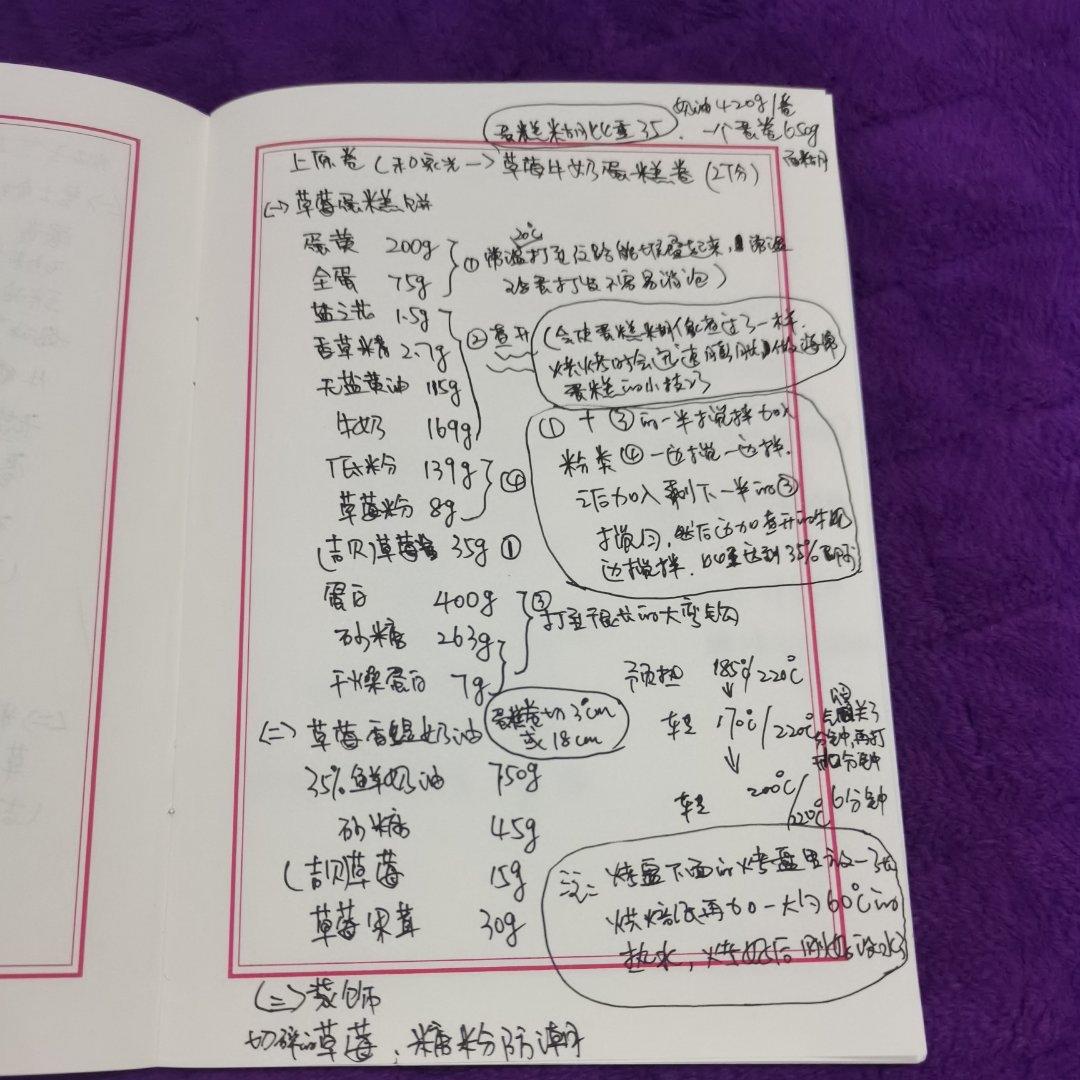 奶油420g/卷
蛋糕糊比重35. 一个蛋卷650g
面糊
草莓牛奶蛋糕卷(2T分)
(一)草莓蛋糕饼
蛋黄 200g
全蛋 75g
① 20℃
常温打至纹路能堆叠起来,常温
盐之花 1.5g
香草精 2.7g
无盐黄油 115g
牛奶 169g
②煮开
(会使蛋糕糊像煮过了一样.
烘烤时会迅速膨胀,做海绵
蛋糕的小技巧
①+③的一半搅拌加入
粉类④一边搅一边拌.
之后加入剩下一半的③
搅匀,然后边加煮开的牛奶
边搅拌.比重达到35%即可
低粉 139g
草莓粉 8g
④
(吉贝)草莓 35g ①
蛋白 400g
砂糖 263g
干燥蛋白 7g
③
打至干性状的大弯钩
预热 185℃/220℃
↓
转 170℃/220℃
↓
转 200℃/220℃ 6分钟
(二)草莓香缇奶油
蛋糕卷切3cm
或18cm
35%鲜奶油 750g
砂糖 45g
(吉贝草莓 15g
草莓果茸 30g
注:烤盘下面的烤盘里放一张
烘焙纸再加一大勺60℃的
热水,烤好后刚好没水了
(三)装饰
切碎的草莓、糖粉防潮